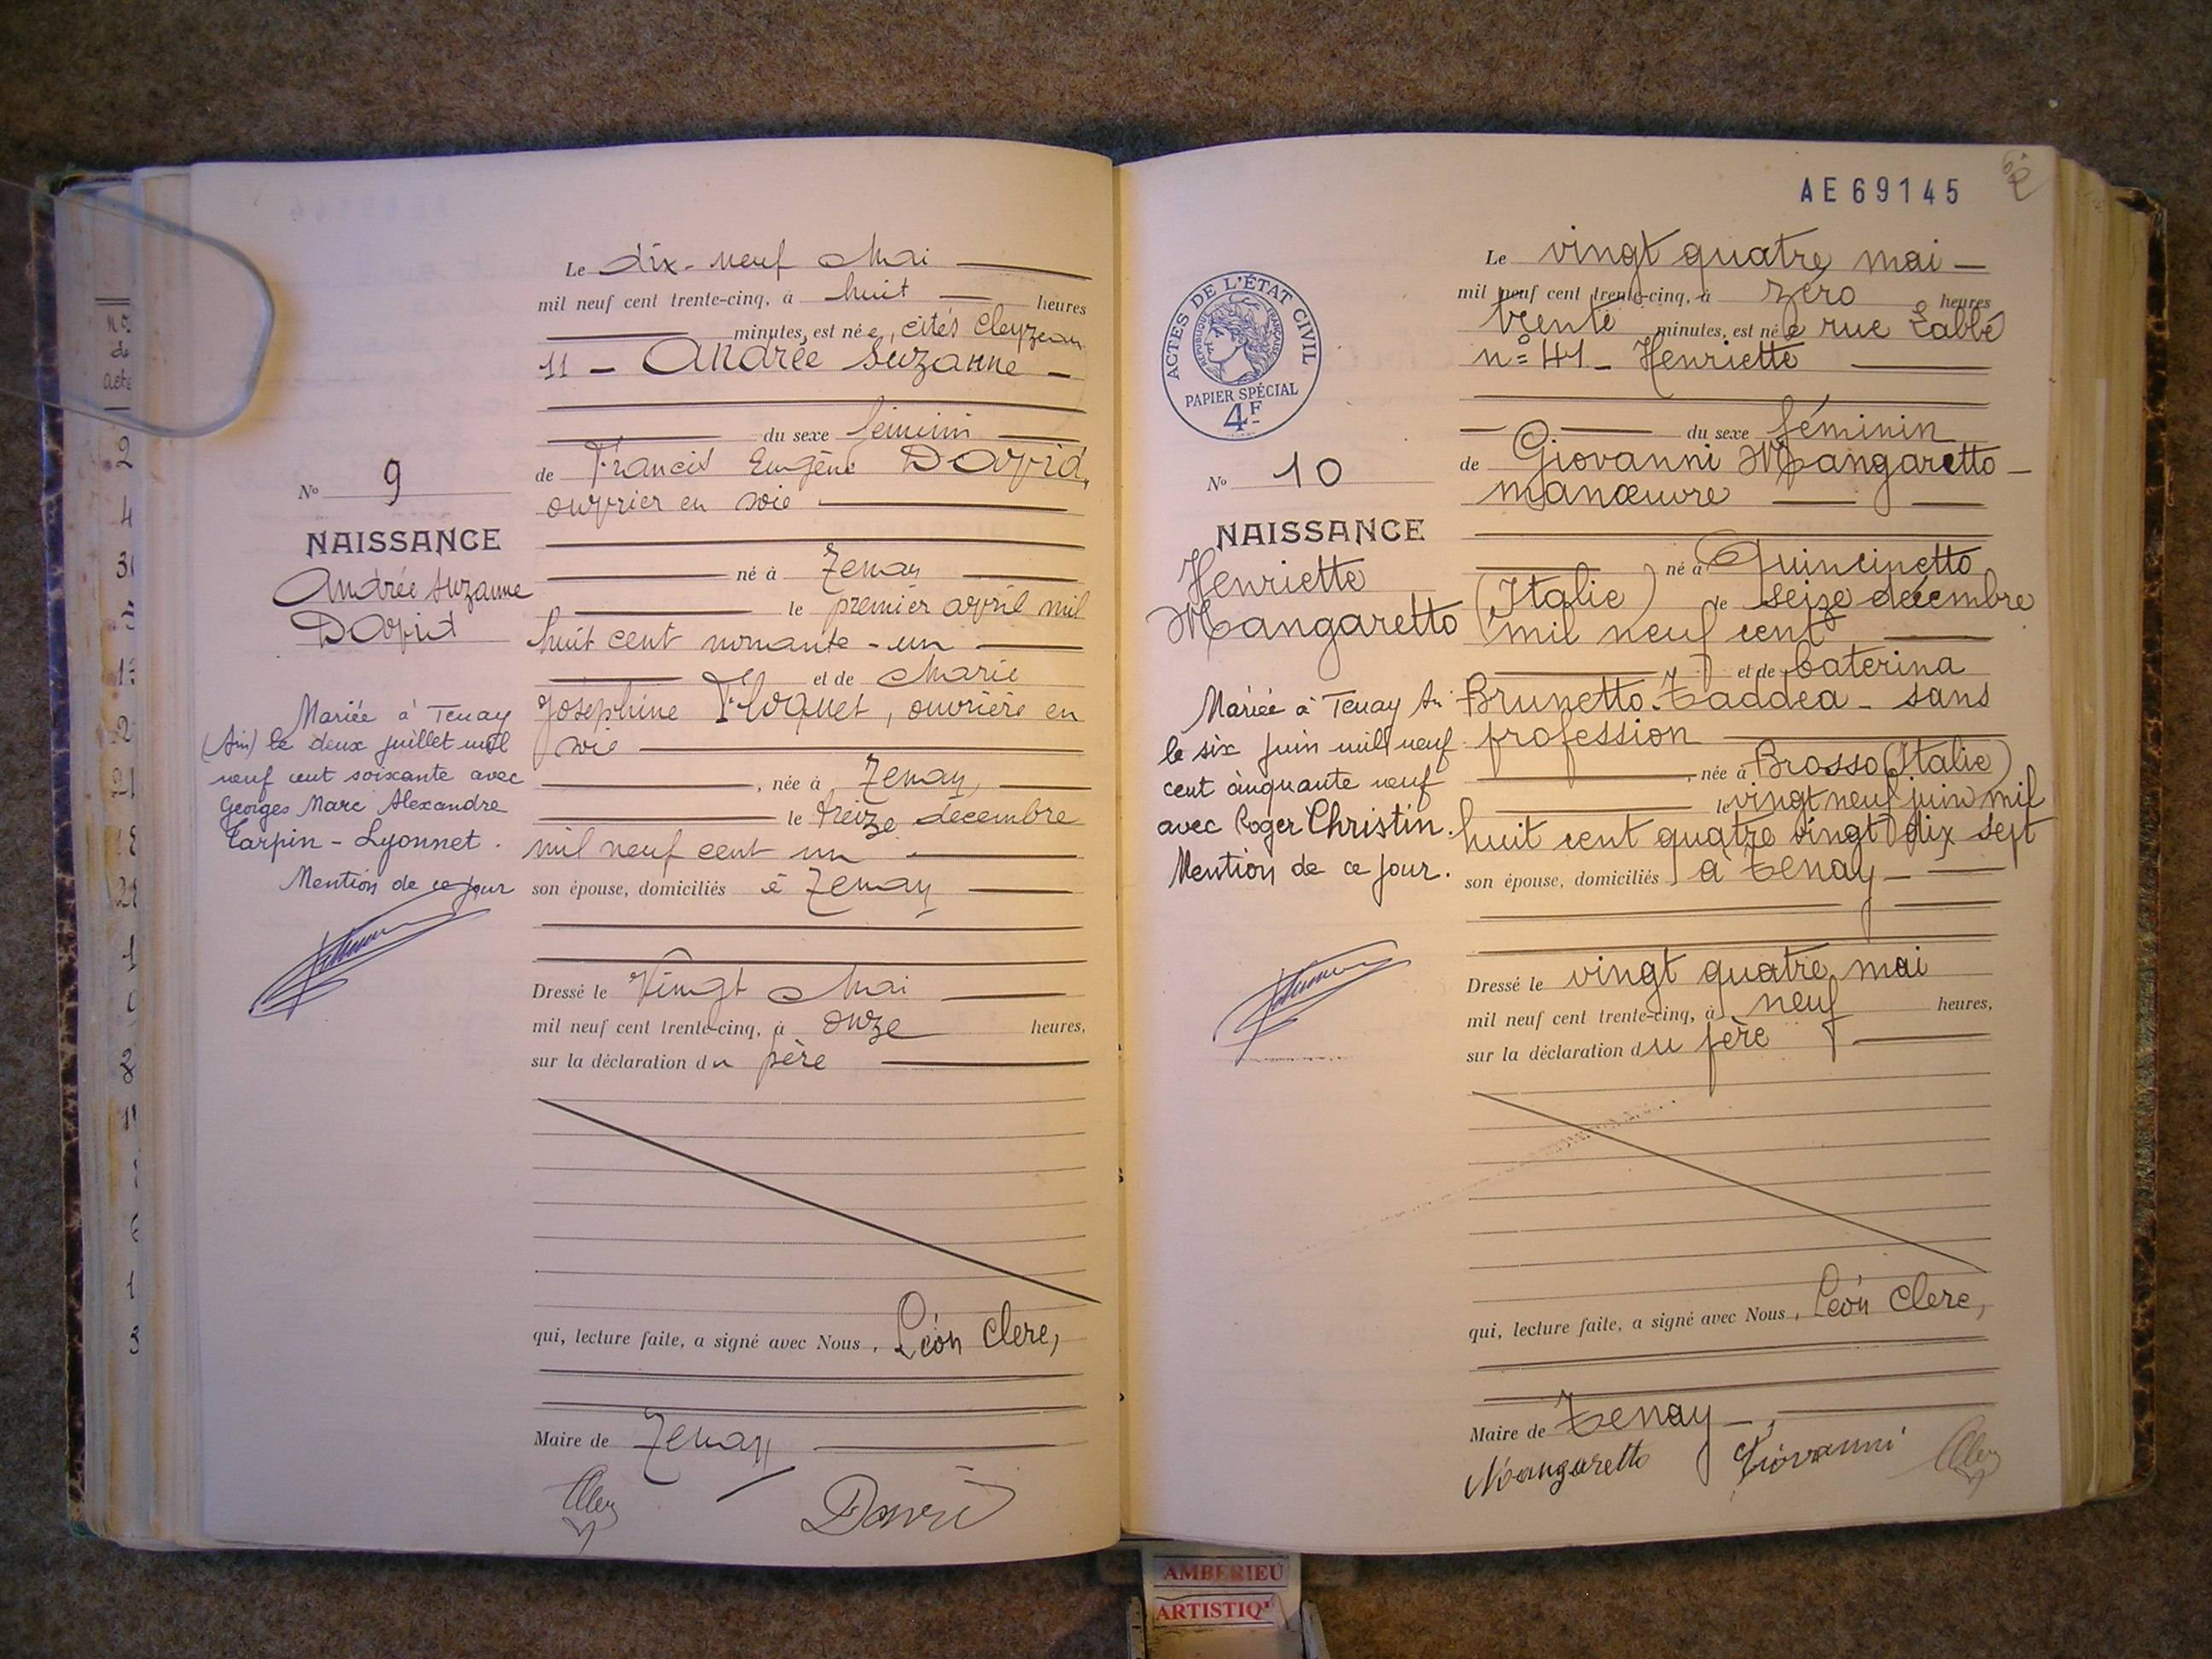 Le dix-neuf Mai
mil neuf cent trente-cinq, à huit heures
minutes, est née, cités Cleyzeau
11 - Andrée Suzanne -
du sexe féminin
de Francis Eugène David,
ouvrier en soie
né à Tenay
le premier avril mil
huit cent nonante-un
et de Marie
Joséphine Floquet, ouvrière en
soie
, née à Tenay,
le treize décembre
mil neuf cent un
son épouse, domiciliés à Tenay
Dressé le Vingt Mai
mil neuf cent trente-cinq, à onze heures,
sur la déclaration du père
qui, lecture faite, a signé avec Nous, Léon Clerc,
Maire de Tenay
David
No 9
NAISSANCE
Andrée Suzanne
David
Mariée à Tenay
(Ain) le deux juillet mil
neuf cent soixante avec
Georges Marc Alexandre
Tarpin - Lyonnet.
Mention de ce jour
No
de
acte
AE69145
ACTES DE L'ÉTAT CIVIL
RÉPUBLIQUE FRANÇAISE
PAPIER SPÉCIAL
4F
No 10
NAISSANCE
Henriette
Mangaretto
Mariée à Tenay Ain
le six juin mil neuf
cent cinquante neuf
avec Roger Christin.
Mention de ce jour.
Le vingt quatre mai -
mil neuf cent trente-cinq, à zéro heures
trente minutes, est née rue Labbé
n° 41 - Henriette
du sexe féminin
de Giovanni Mangaretto -
manœuvre
né à Quincinetto
(Italie) le seize décembre
mil neuf cent
et de Caterina
Brunetto-Taddea - sans
profession
, née à Brosso (Italie)
le vingt neuf juin mil
huit cent quatre vingt dix sept
son épouse, domiciliés à Tenay -
Dressé le vingt quatre mai
mil neuf cent trente-cinq, à neuf heures,
sur la déclaration du père
qui, lecture faite, a signé avec Nous, Léon Clerc,
Maire de Tenay -
Mangaretto Giovanni
AMBERIEU
ARTISTIQ